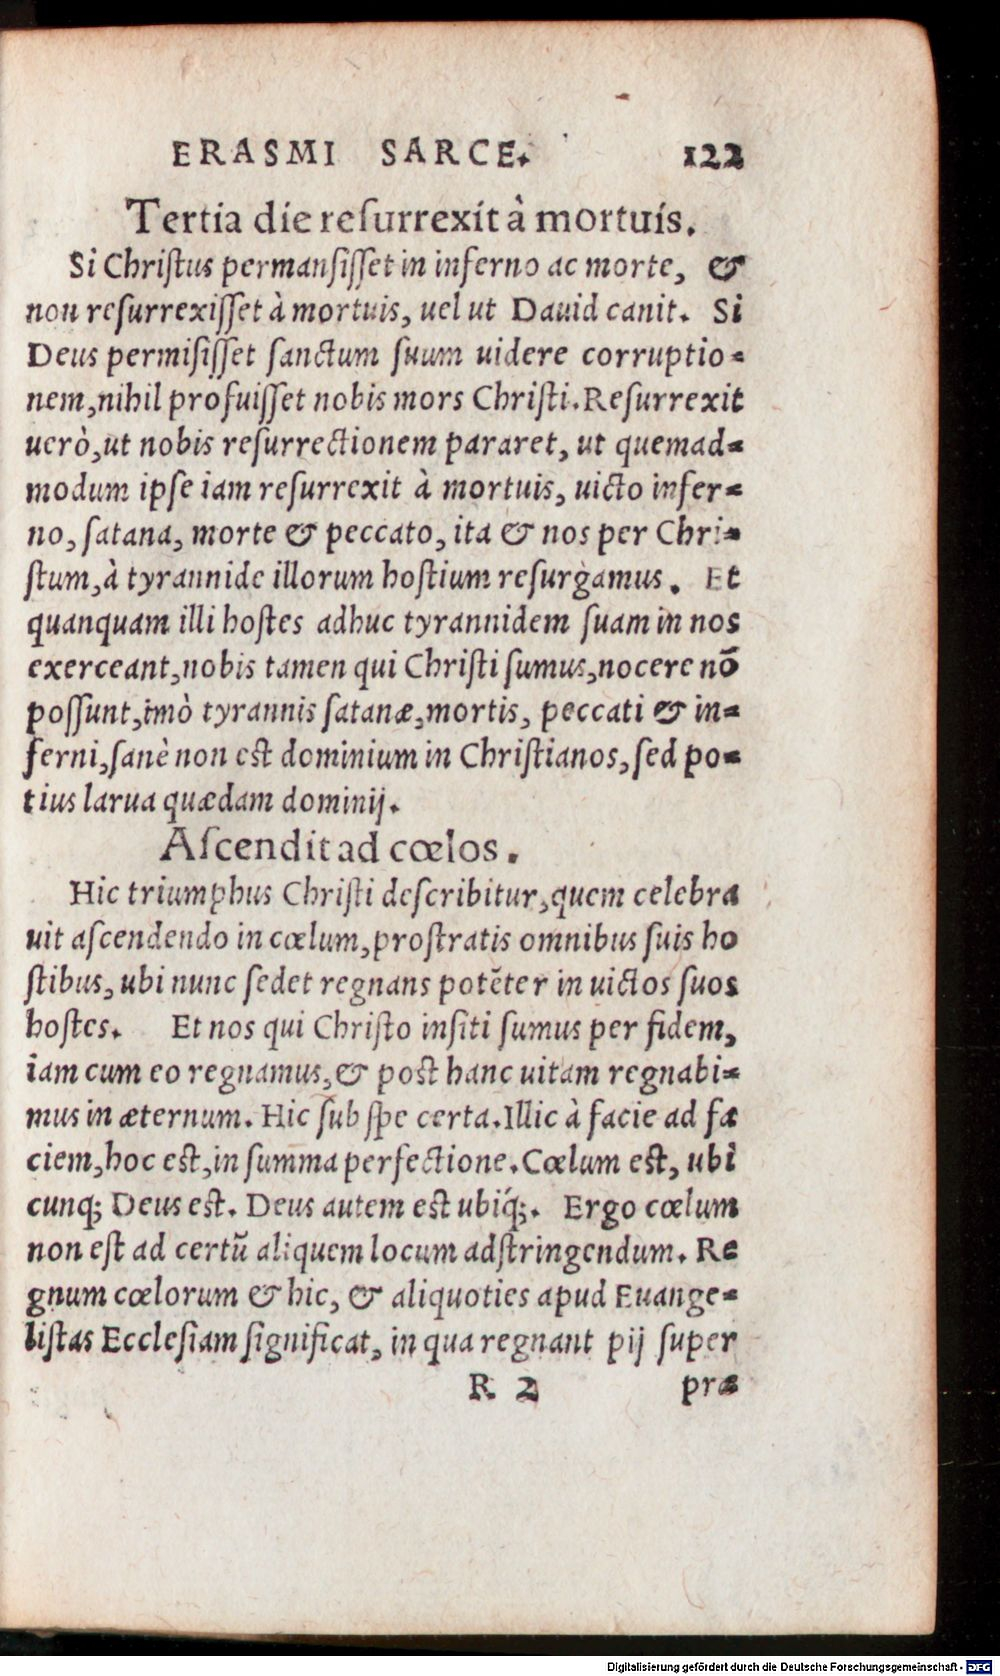 ERASMI SARCE. 122
Tertia die reſurrexít à mortuís.
Si Chriſtus permanſiſſet in inferno ac morte, &
non reſurrexiſſet à mortuis, uel ut Dauid canit. Si
Deus permiſiſſet ſanctum ſuum uidere corruptio-
nem, nihil profuiſſet nobis mors Chriſti. Reſurrexit
uerò, ut nobis reſurrectionem pararet, ut quemad-
modum ipſe iam reſurrexit à mortuis, uicto infer-
no, ſatana, morte & peccato, ita & nos per Chri-
ſtum, à tyrannide illorum hoſtium reſurgamus. Et
quanquam illi hoſtes adhuc tyrannidem ſuam in nos
exerceant, nobis tamen qui Chriſti ſumus, nocere nō
poſſunt, imò tyrannis ſatanæ, mortis, peccati & in-
ferni, ſanè non eſt dominium in Chriſtianos, ſed po-
tius larua quædam dominij.
Aſcendit ad cœlos.
Hic triumphus Chriſti deſcribitur, quem celebra
uit aſcendendo in cœlum, proſtratis omnibus ſuis ho
ſtibus, ubi nunc ſedet regnans potēter in uictos ſuos
hoſtes. Et nos qui Chriſto inſiti ſumus per fidem,
iam cum eo regnamus, & poſt hanc uitam regnabi-
mus in æternum. Hic ſub ſpe certa. Illic à facie ad fa
ciem, hoc eſt, in ſumma perfectione. Cœlum eſt, ubi
cunq; Deus eſt. Deus autem eſt ubiq́;. Ergo cœlum
non eſt ad certū aliquem locum adſtringendum. Re
gnum cœlorum & hic, & aliquoties apud Euange-
liſtas Eccleſiam ſignificat, in qua regnant pij ſuper
R 2 præ
Digitalisierung gefördert durch die Deutsche Forschungsgemeinschaft - DFG